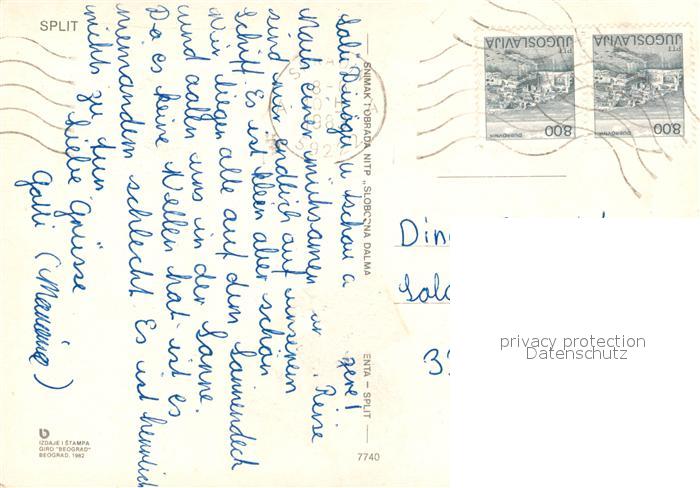 SPLIT
Sali Dinogu u tschau a
zere!
Nach einer mühsamen Reise
sind wir endlich auf unserem
Schiff. Es ist klein aber schön
Wir liegen alle auf dem Sonnendeck
und aalen uns in der Sonne.
Da es keine Wellen hat ist es
niemandem schlecht. Es ist herrlich
nichts zu tun
Liebe Grüsse
Galli (Marianne)
SNIMAK I OBRADA NITP „SLOBODNA DALMA
ENTA – SPLIT
7740
IZDAJE I ŠTAMPA
GIRO "BEOGRAD"
BEOGRAD, 1982
PTT
JUGOSLAVIJA
DUBROVNIK
8.00
PTT
JUGOSLAVIJA
DUBROVNIK
8.00
Din
3
privacy protection
Datenschutz